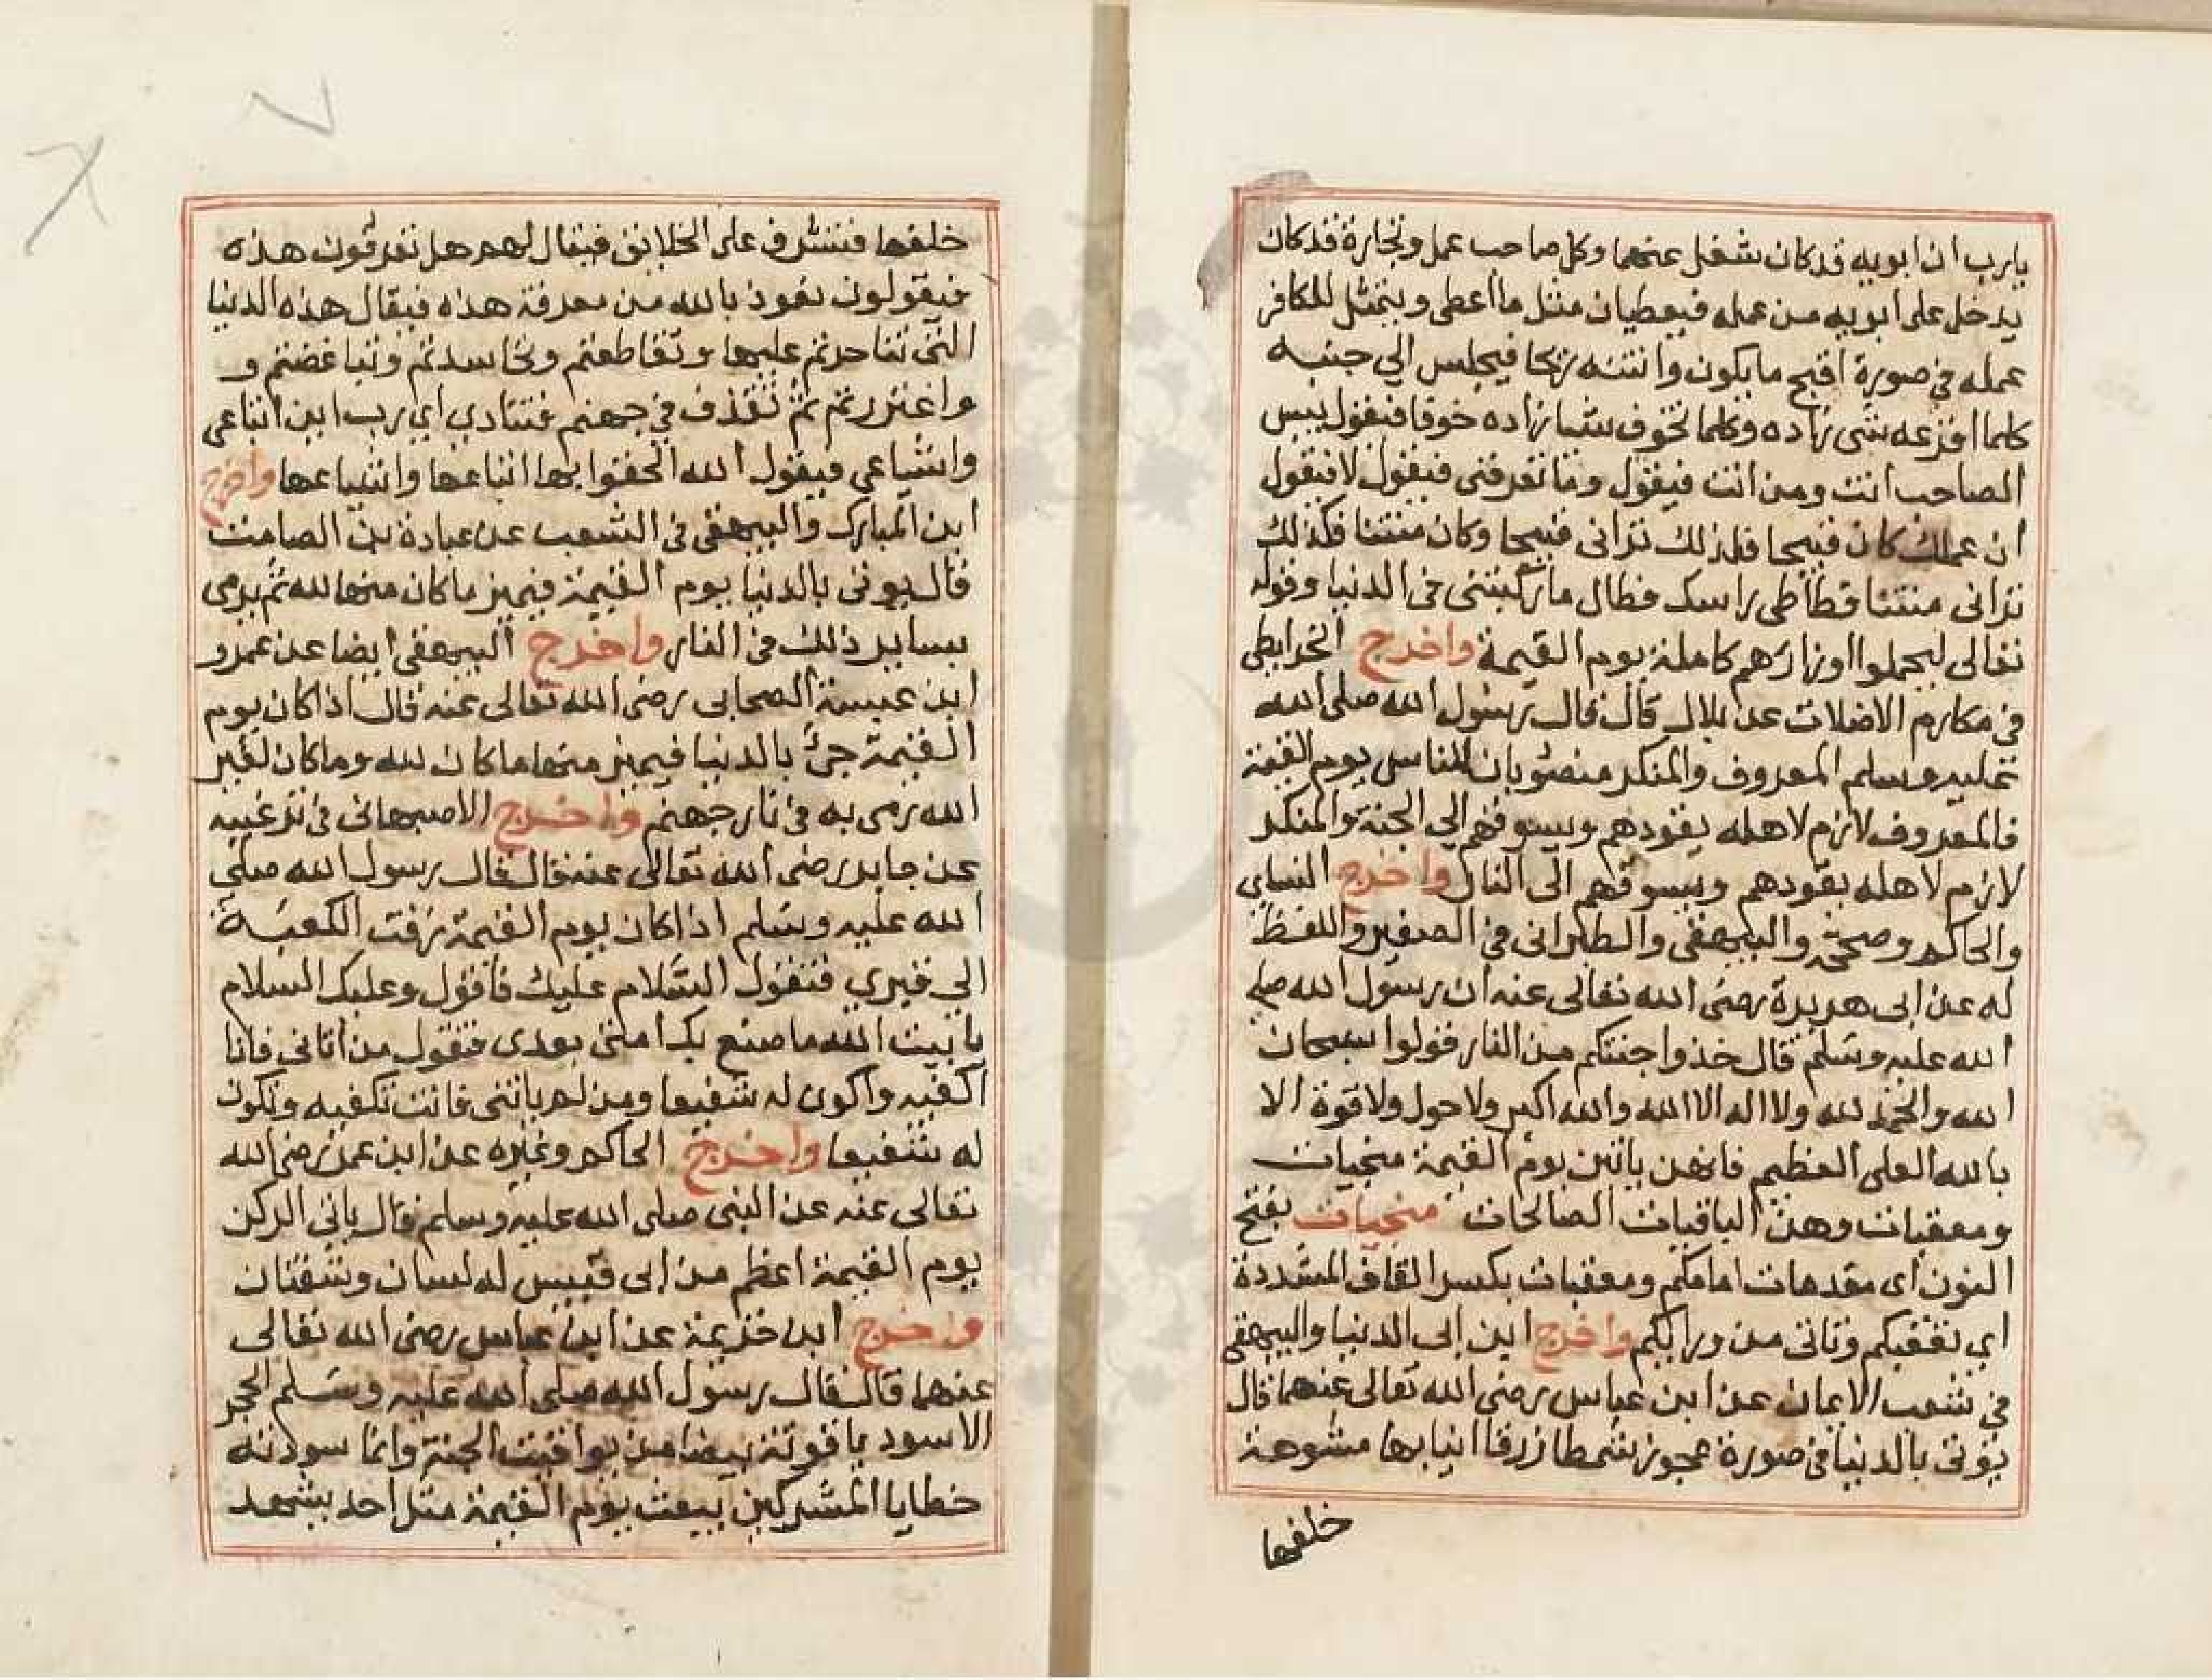 يارب ان ابويه قد كان شغل عنهما وكل صاحب عمل وتجارة قد كان
يدخل على ابويه من عمله فيعطيان مثل ما اعطى ويتمثل للكافر
عمله في صورة اقبح ما يكون وانتنه ريحا فيجلس الي جنبه
كلما افزعه شى زاده وكلما تخوف شيا زاده خوفا فيقول بيس
الصاحب انت ومن انت فيقول وما تعرفنى فيقول لا فيقول
ان عملك كان قبيحا فلذلك ترانى قبيحا وكان منتنا فكذلك
ترانى منتنا فطأطى راسك فطال ما ركبتنى فى الدنيا وقوله
تعالى ليحملوا اوزارهم كاملة يوم القيمة واخرج الخرايطى
في مكارم الاخلات عن بلال قال قال رسول الله صلى الله
عليه وسلم المعروف والمنكر منصوبان للناس يوم القيمة
فالمعروف لازم لاهله يقودهم ويسوقهم الي الجنة والمنكر
لازم لاهله يقودهم ويسوقهم الى النار واخرج النساي
والحاكم وصححه والبيهقى والطبرانى في الصغير واللفظ
له عن ابى هريرة رضى الله تعالى عنه ان رسول الله صلى
الله عليه وسلم قال خذوا جنتكم من النار قولوا سبحان
الله والحمد لله ولا اله الا الله والله اكبر ولا حول ولا قوة الا
بالله العلى العظيم فانهن ياتين يوم القيمة منجيات
ومعقبات وهن الباقيات الصالحات منجيات بفتح
النون اى مقدمات امامكم ومعقبات بكسر القاف المشددة
اي تعقبكم وتاتى من ورايكم واخرج ابن ابى الدنيا والبيهقى
في شعب الايمان عن ابن عباس رضى الله تعالى عنهما قال
يؤتى بالدنيا في صورة عجوز شمطا زرقا انيابها مشوهة
خلقها
خلقها فتشرف على الخلائق فيقال لهم هل تعرفون هذه
فيقولون نعوذ بالله من معرفة هذه فيقال هذه الدنيا
التى تناحرتم عليها وتقاطعتم وتحاسدتم وتباغضتم و
واغتررتم ثم تقذف في جهنم فتنادي اي رب اين اتباعى
واشياعي فيقول الله الحقوا بها اتباعها واشياعها واخرج
ابن المبارك والبيهقى فى الشعب عن عبادة بن الصامت
قال يوتى بالدنيا يوم القيمة فيميز ما كان منها لله ثم يرمى
بساير ذلك في النار واخرج البيهقى ايضا عن عمرو
ابن عبسة الصحابى رضى الله تعالى عنه قال اذا كان يوم
القيمة جئ بالدنيا فيميز منها ما كان لله وما كان لغير
الله رمى به في نار جهنم واخرج الاصبهانى في ترغيبه
عن جابر رضى الله تعالى عنه قال قال رسول الله صلى
الله عليه وسلم اذا كان يوم القيمة زفت الكعبة
الي قبري فتقول السلام عليك فاقول وعليك السلام
يا بيت الله ما صنع بك امتى بعدى فتقول من اتانى فانا
اكفيه واكون له شفيعا ومن لم ياتنى فانت تكفيه وتكون
له شفيعا واخرج الحاكم وغيره عن ابن عمر رضى الله
تعالى عنه عن النبى صلى الله عليه وسلم قال ياتى الركن
يوم القيمة اعظم من ابى قبيس له لسان وشفتان
واخرج ابن خزيمة عن ابن عباس رضى الله تعالى
عنهما قال قال رسول الله صلى الله عليه وسلم الحجر
الاسود ياقوتة بيضا من يواقيت الجنة وانما سودته
خطايا المشركين يبعث يوم القيمة مثل احد يشهد